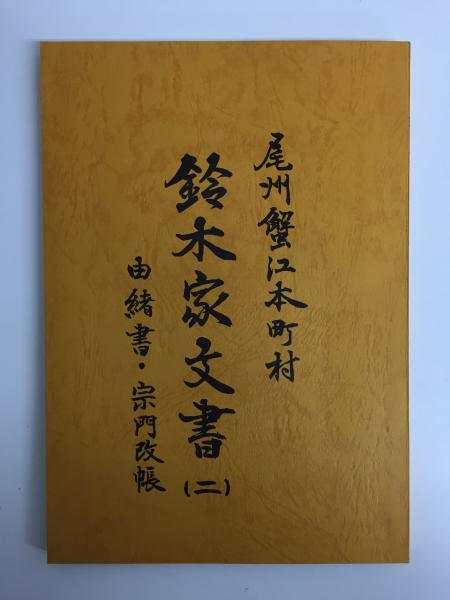 尾州蟹江本町村
鈴木家文書(二)
由緒書・宗門改帳